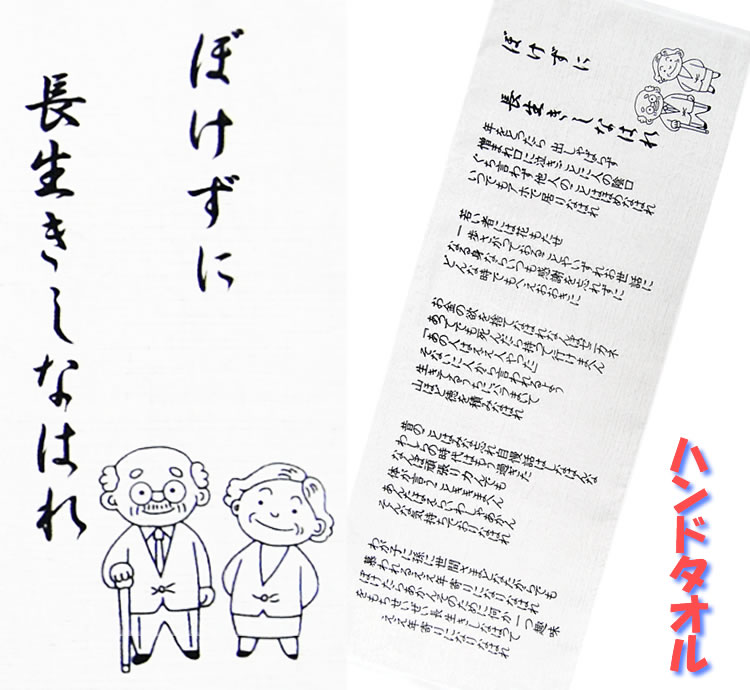 ぼけずに
長生きしなはれ
ぼけずに
長生きしなはれ
年をとったら 出しゃばらず
憎まれ口に泣きごとに人の陰口
ぐち言わず他人のことはほめなはれ
いつでもアホで居りなはれ
若い者には花もたせ
一歩さがって いずれお世話に
なる身ないつも感謝を忘れずに
どんな時でもへえおおきに
お金の欲を捨てなはれなんぼゼニカネ
あっても死んだら持って行けまへん
「あの人はええ人やった」
そないに人から言われるよう
生きてるうちにバラまいて
山ほど徳を積みなはれ
昔のことはみな忘れ自慢話はしなはんな
わしらの時代はもう過ぎた
なんぼ頑張り力んでも
体が言うことききまへん
あんたはえらいわしゃあかん
そんな気持ちでおりなはれ
わが子に孫に世間さまどなたからでも
慕われるええ年寄りになりなはれ
ぼけたらあかんそのために何か一つ趣味
をもちせいぜい長生きしなはって
ええ年寄りになりなはれ
ハンドタオル